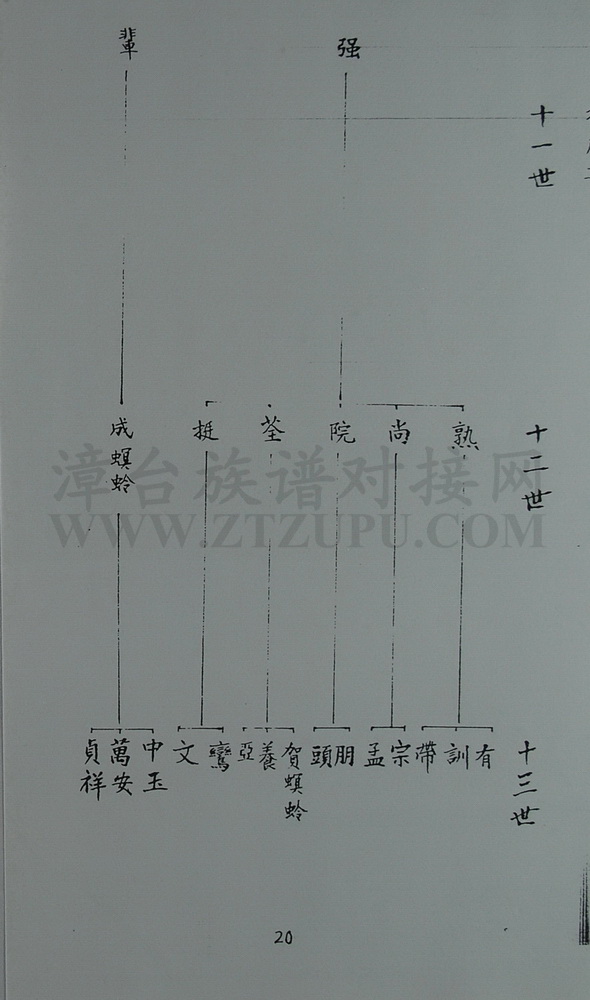 十一世
强
輩
十二世
熟
尚
院
荃
挺
成螟蛉
十三世
有
訓
帶
宗
孟
朋
頭
賀螟蛉
養
亞
鸞
文
中玉
萬安
貞祥
漳台族谱对接网
WWW.ZTZUPU.COM
20